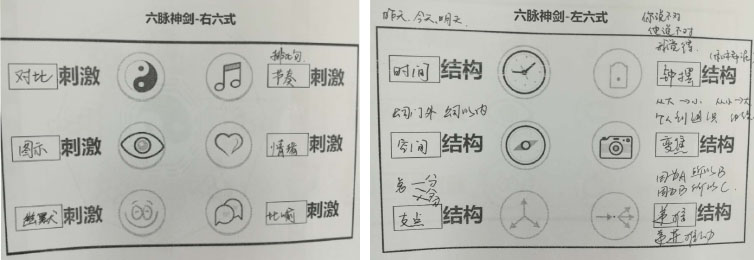 六脉神剑-右六式
排比句
对比刺激
节奏刺激
图示刺激
情绪刺激
幽默刺激
比喻刺激
昨天、今天、明天
六脉神剑-左六式
你说不对
他说不对
我觉得
时间结构
钟摆结构
公司门外 公司以内
从大→小 从小→大
空间结构
变焦结构
因为A 所以B
因为B 所以C
支点结构
结构